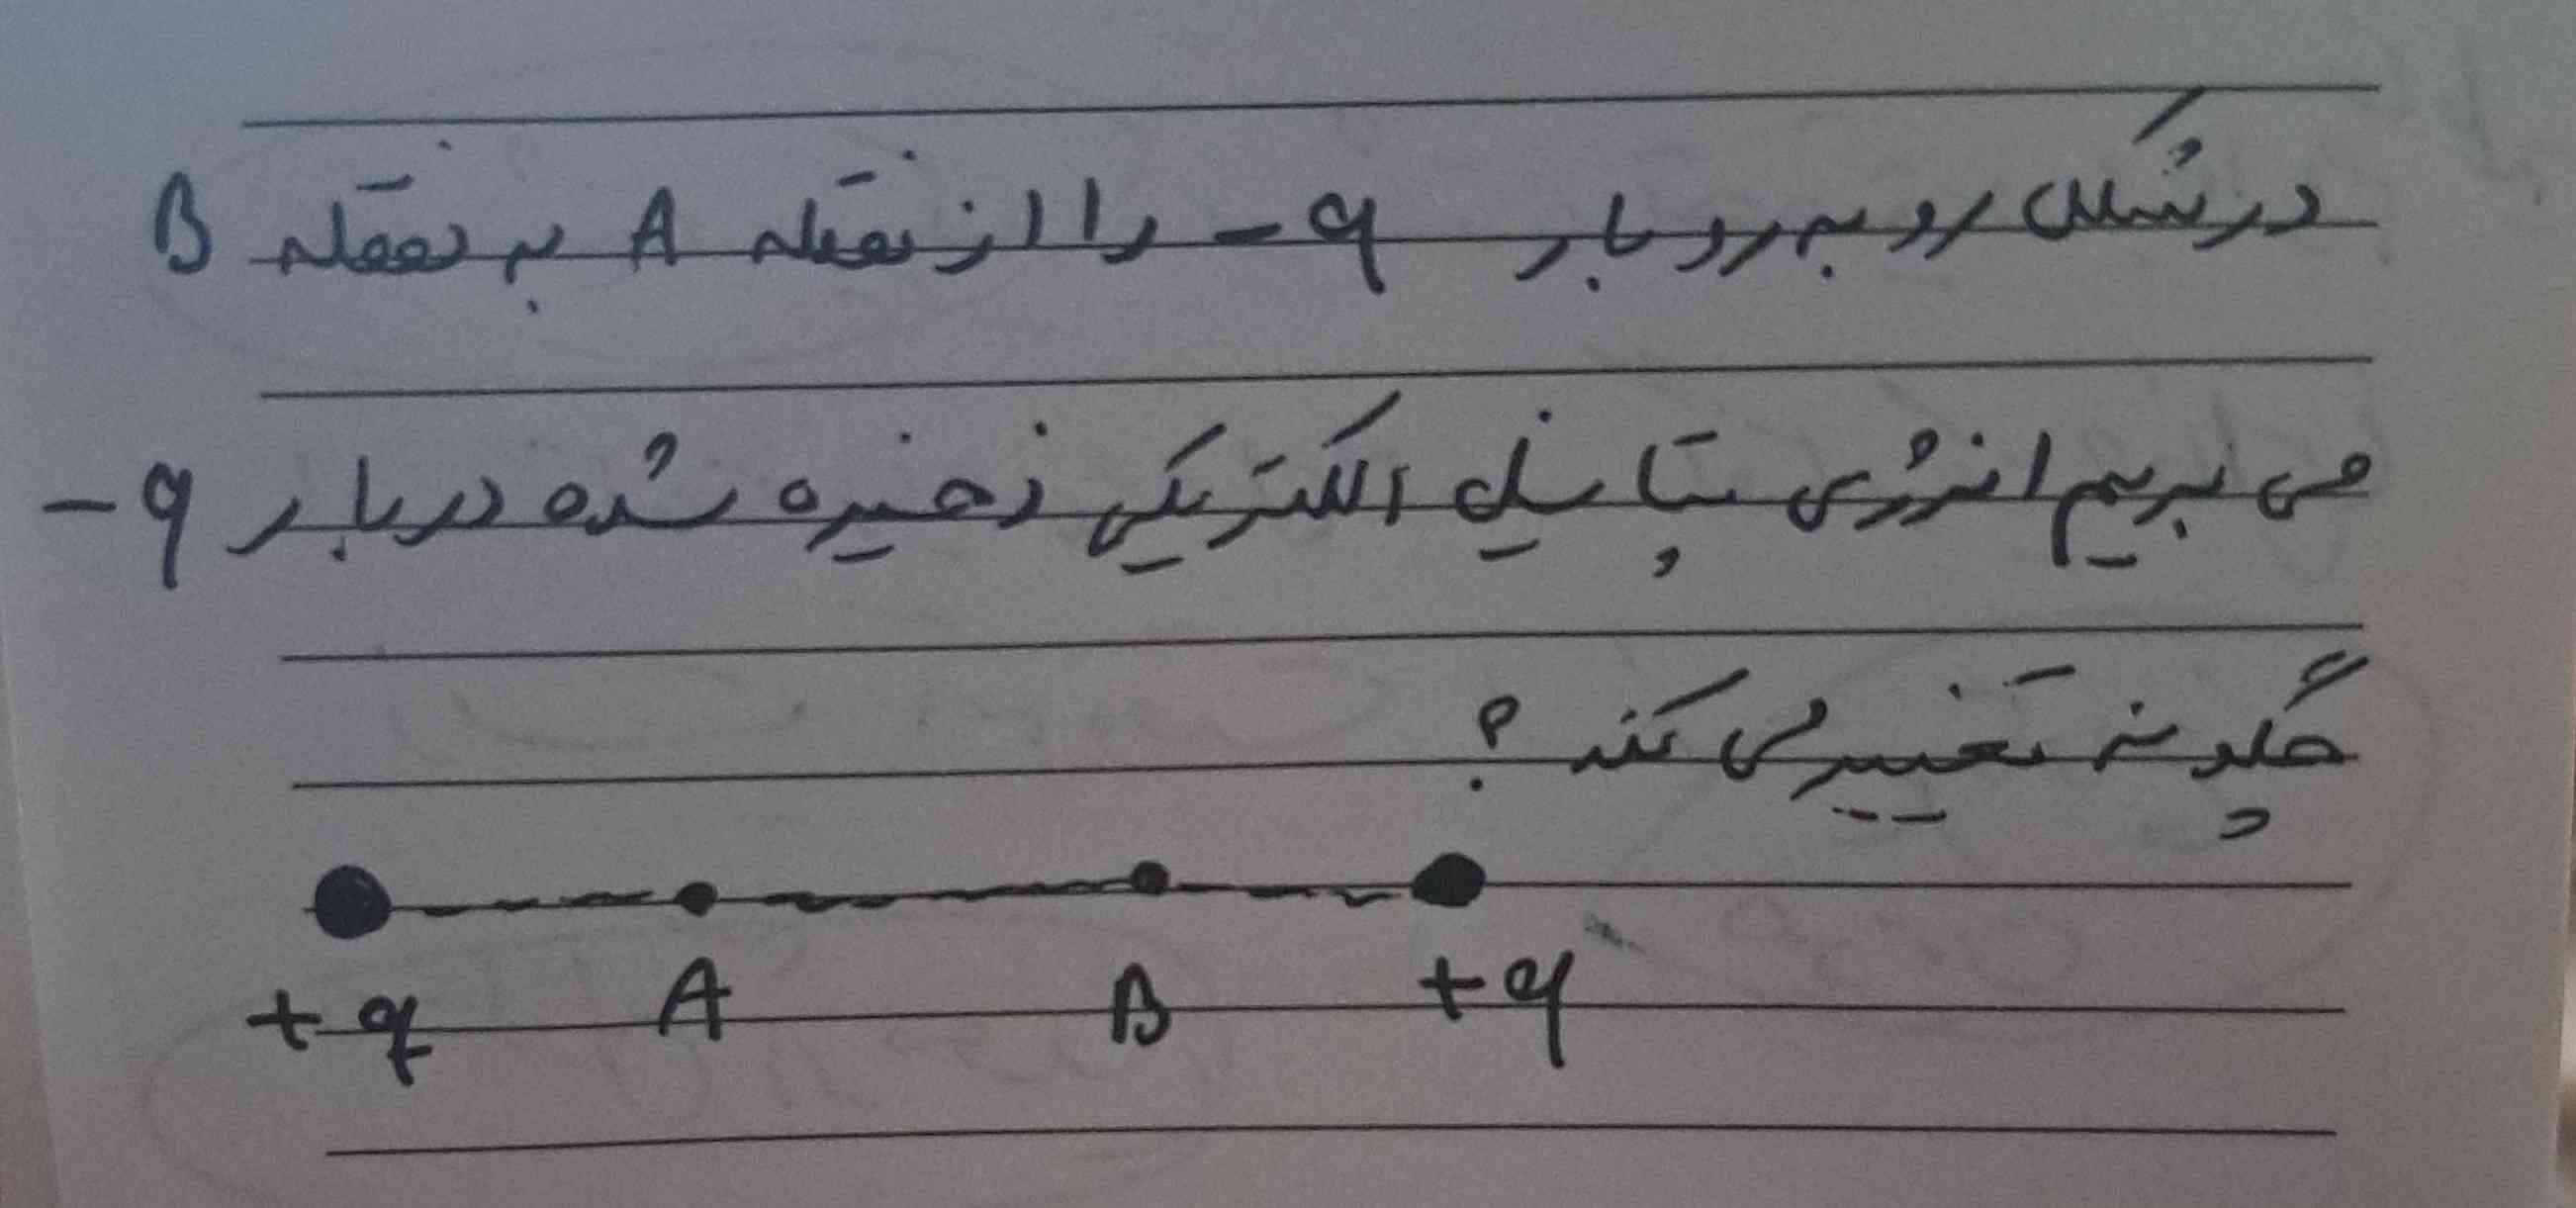 در شکل رو به رو بار q- را از نقطه A به نقطه B
می بریم انرژی پتانسیل الکتریکی ذخیره شده در بار q-
چگونه تغییر می کند ؟
+q A B +q